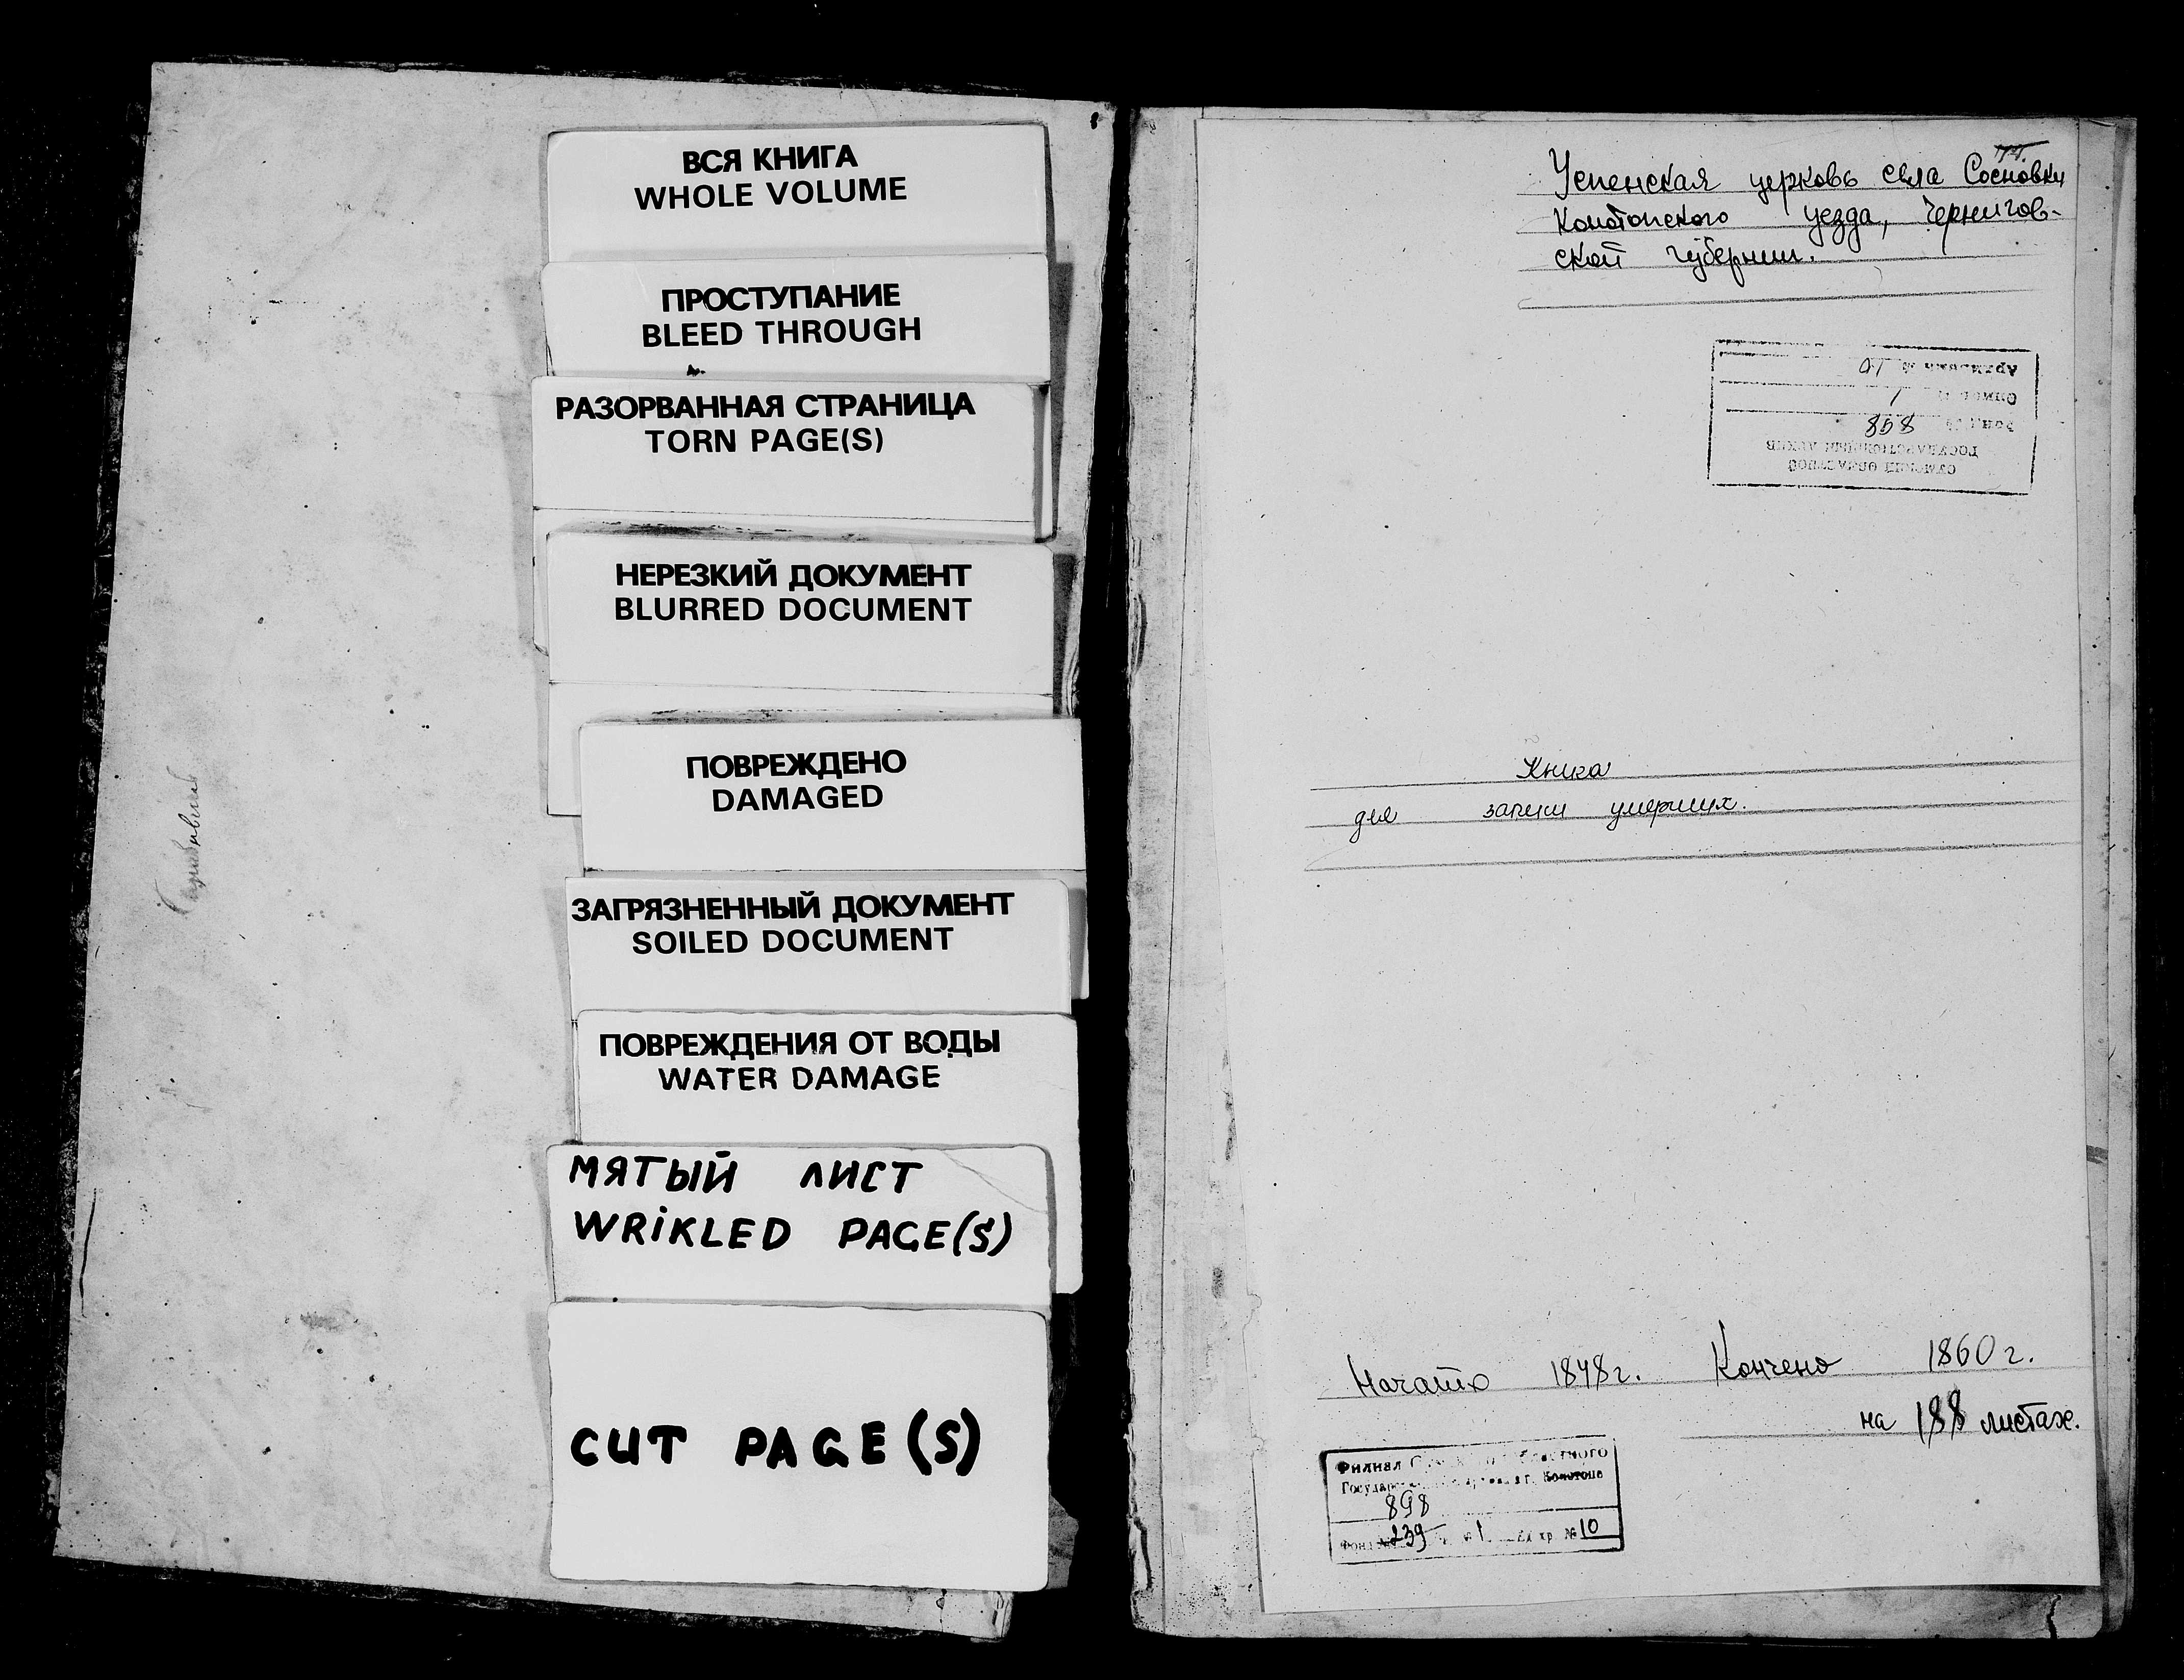 ВСЯ КНИГА
WHOLE VOLUME
ПРОСТУПАНИЕ
BLEED THROUGH
РАЗОРВАННАЯ СТРАНИЦА
TORN PAGE(S)
НЕРЕЗКИЙ ДОКУМЕНТ
BLURRED DOCUMENT
ПОВРЕЖДЕНО
DAMAGED
ЗАГРЯЗНЕННЫЙ ДОКУМЕНТ
SOILED DOCUMENT
ПОВРЕЖДЕНИЯ ОТ ВОДЫ
WATER DAMAGE
МЯТЫЙ ЛИСТ
WRIKLED PAGE(S)
CUT PAGE(S)
Успенская церковь села Сосновки
Конотопского уезда, Чернигов-
ской губернии.
СУМСКИЙ ОБЛАСТНОЙ
ГОСУДАРСТВЕННЫЙ АРХИВ
Фонд №
Опись № 1
Архивный № 10
Книга
для записи умерших.
Начато 1848 г. Кончено 1860 г.
на 188 листах.
Филиал областного
г. Конотопе
898
Фонд № 239 № 1 хр № 10